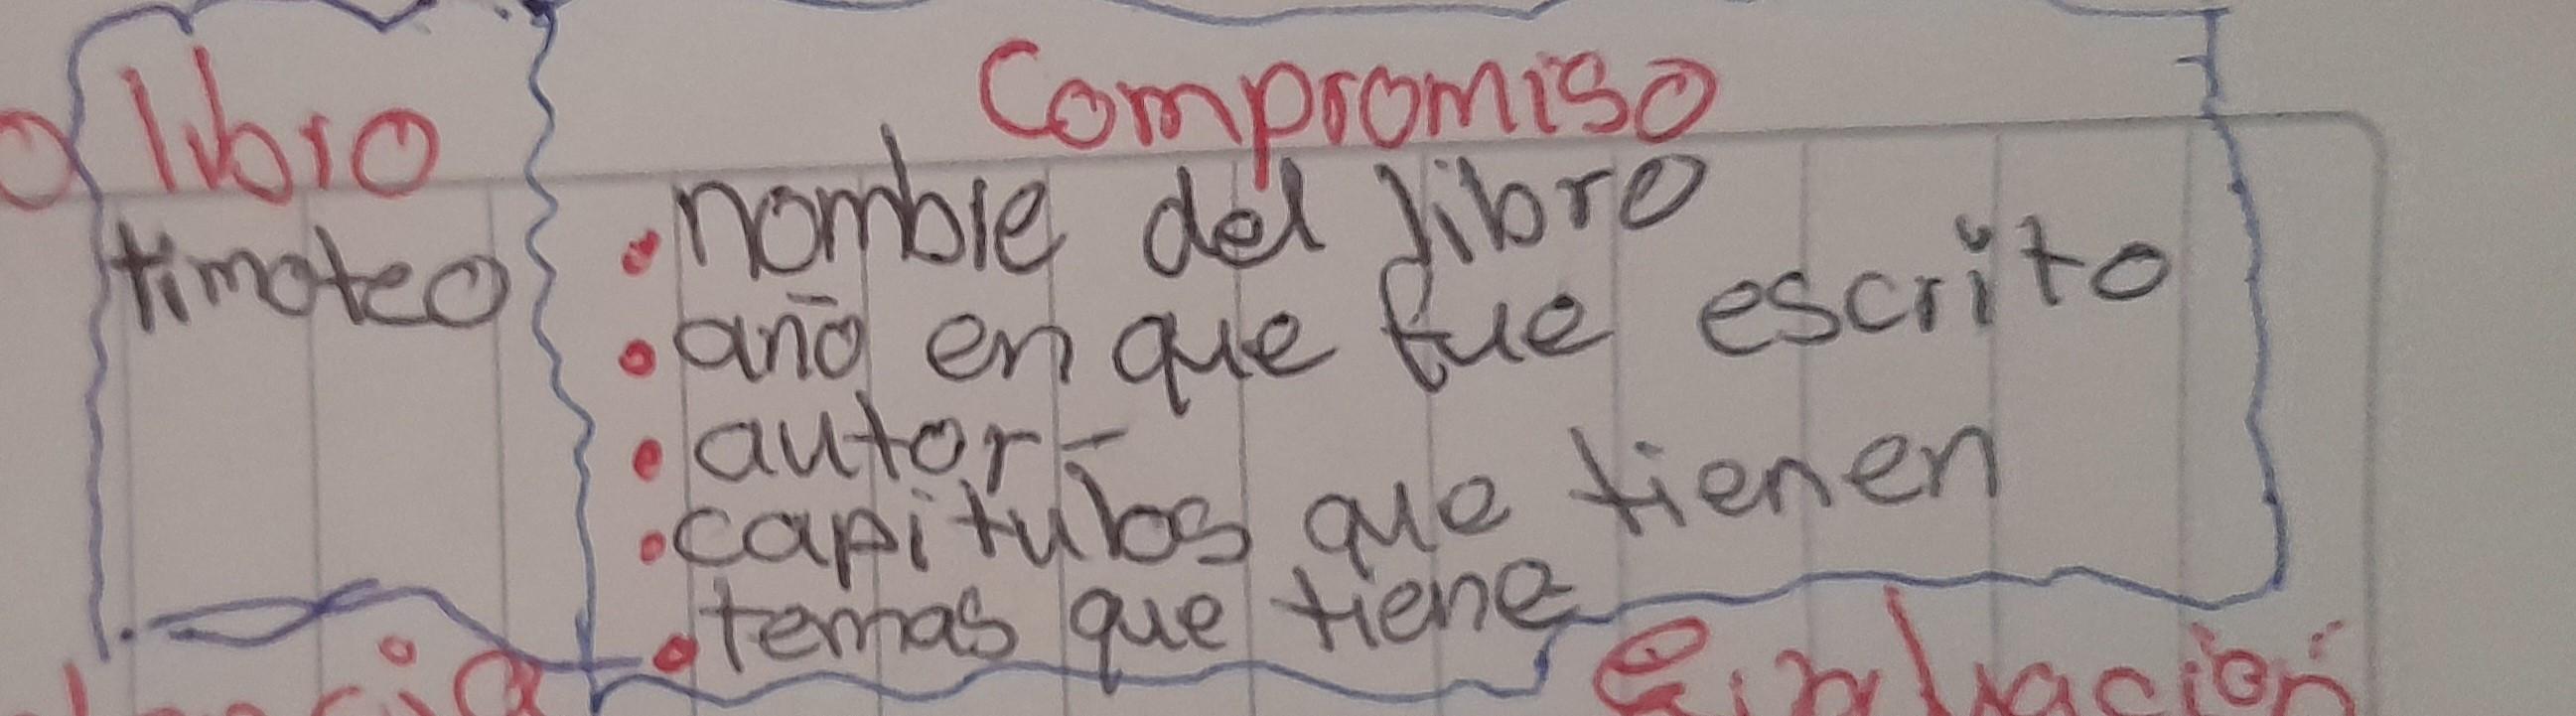 libro
timoteo
Compromiso
• nombre del libro
• año en que fue escrito
• autor-
• capitulos que tienen
• temas que tiene
Evaluación